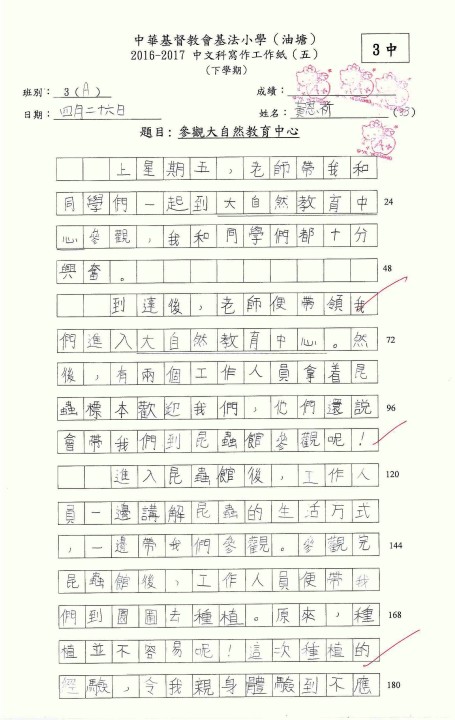 中華基督教會基法小學（油塘）
3中
2016-2017 中文科寫作工作紙（五）
（下學期）
班別：3（A）
成績：
日期：四月二十六日
姓名：黃思齊（33）
題目：參觀大自然教育中心
上星期五，老師帶我和
同學們一起到大自然教育中 24
心參觀，我和同學們都十分
興奮。 48
到達後，老師便帶領我
們進入大自然教育中心。然 72
後，有兩個工作人員拿着昆
蟲標本歡迎我們，他們還說 96
會帶我們到昆蟲館參觀呢！
進入昆蟲館後，工作人 120
員一邊講解昆蟲的生活方式
，一邊帶我們參觀。參觀完 144
昆蟲館後，工作人員便帶我
們到園圃去種植。原來，種 168
植並不容易呢！這次種植的
經驗，令我親身體驗到不應 180